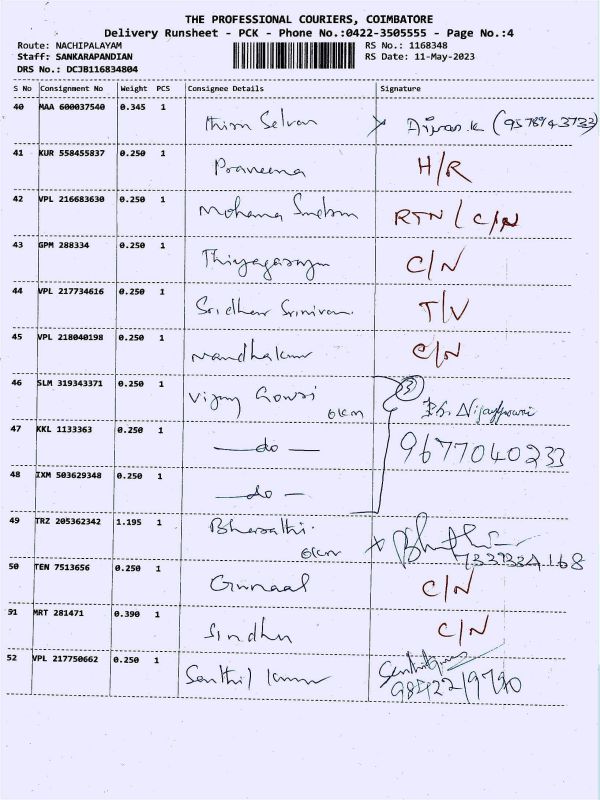 THE PROFESSIONAL COURIERS, COIMBATORE
Delivery Runsheet - PCK - Phone No.:0422-3505555 - Page No.:4
Route: NACHIPALAYAM RS No.: 1168348
Staff: SANKARAPANDIAN RS Date: 11-May-2023
DRS No.: DCJB116834804
S No Consignment No Weight PCS Consignee Details Signature
40 MAA 600037540 0.345 1 Selvan
41 KUR 558455837 0.250 1 Praveena H/R
42 VPL 216683630 0.250 1 Mohana RTN / C/N
43 GPM 288334 0.250 1 Thiyagarajan C/N
44 VPL 217734616 0.250 1 Sridhar Srinivasan T/V
45 VPL 218040198 0.250 1 Nandhakumar C/N
46 SLM 319343371 0.250 1 Vijay Gowri 6km 3
47 KKL 1133363 0.250 1 —do— 9677040233
48 IXM 503629348 0.250 1 —do—
49 TRZ 205362342 1.195 1 Bharathi 6km
50 TEN 7513656 0.250 1 C/N
51 MRT 281471 0.390 1 Sindhu C/N
52 VPL 217750662 0.250 1 Senthil Kumar